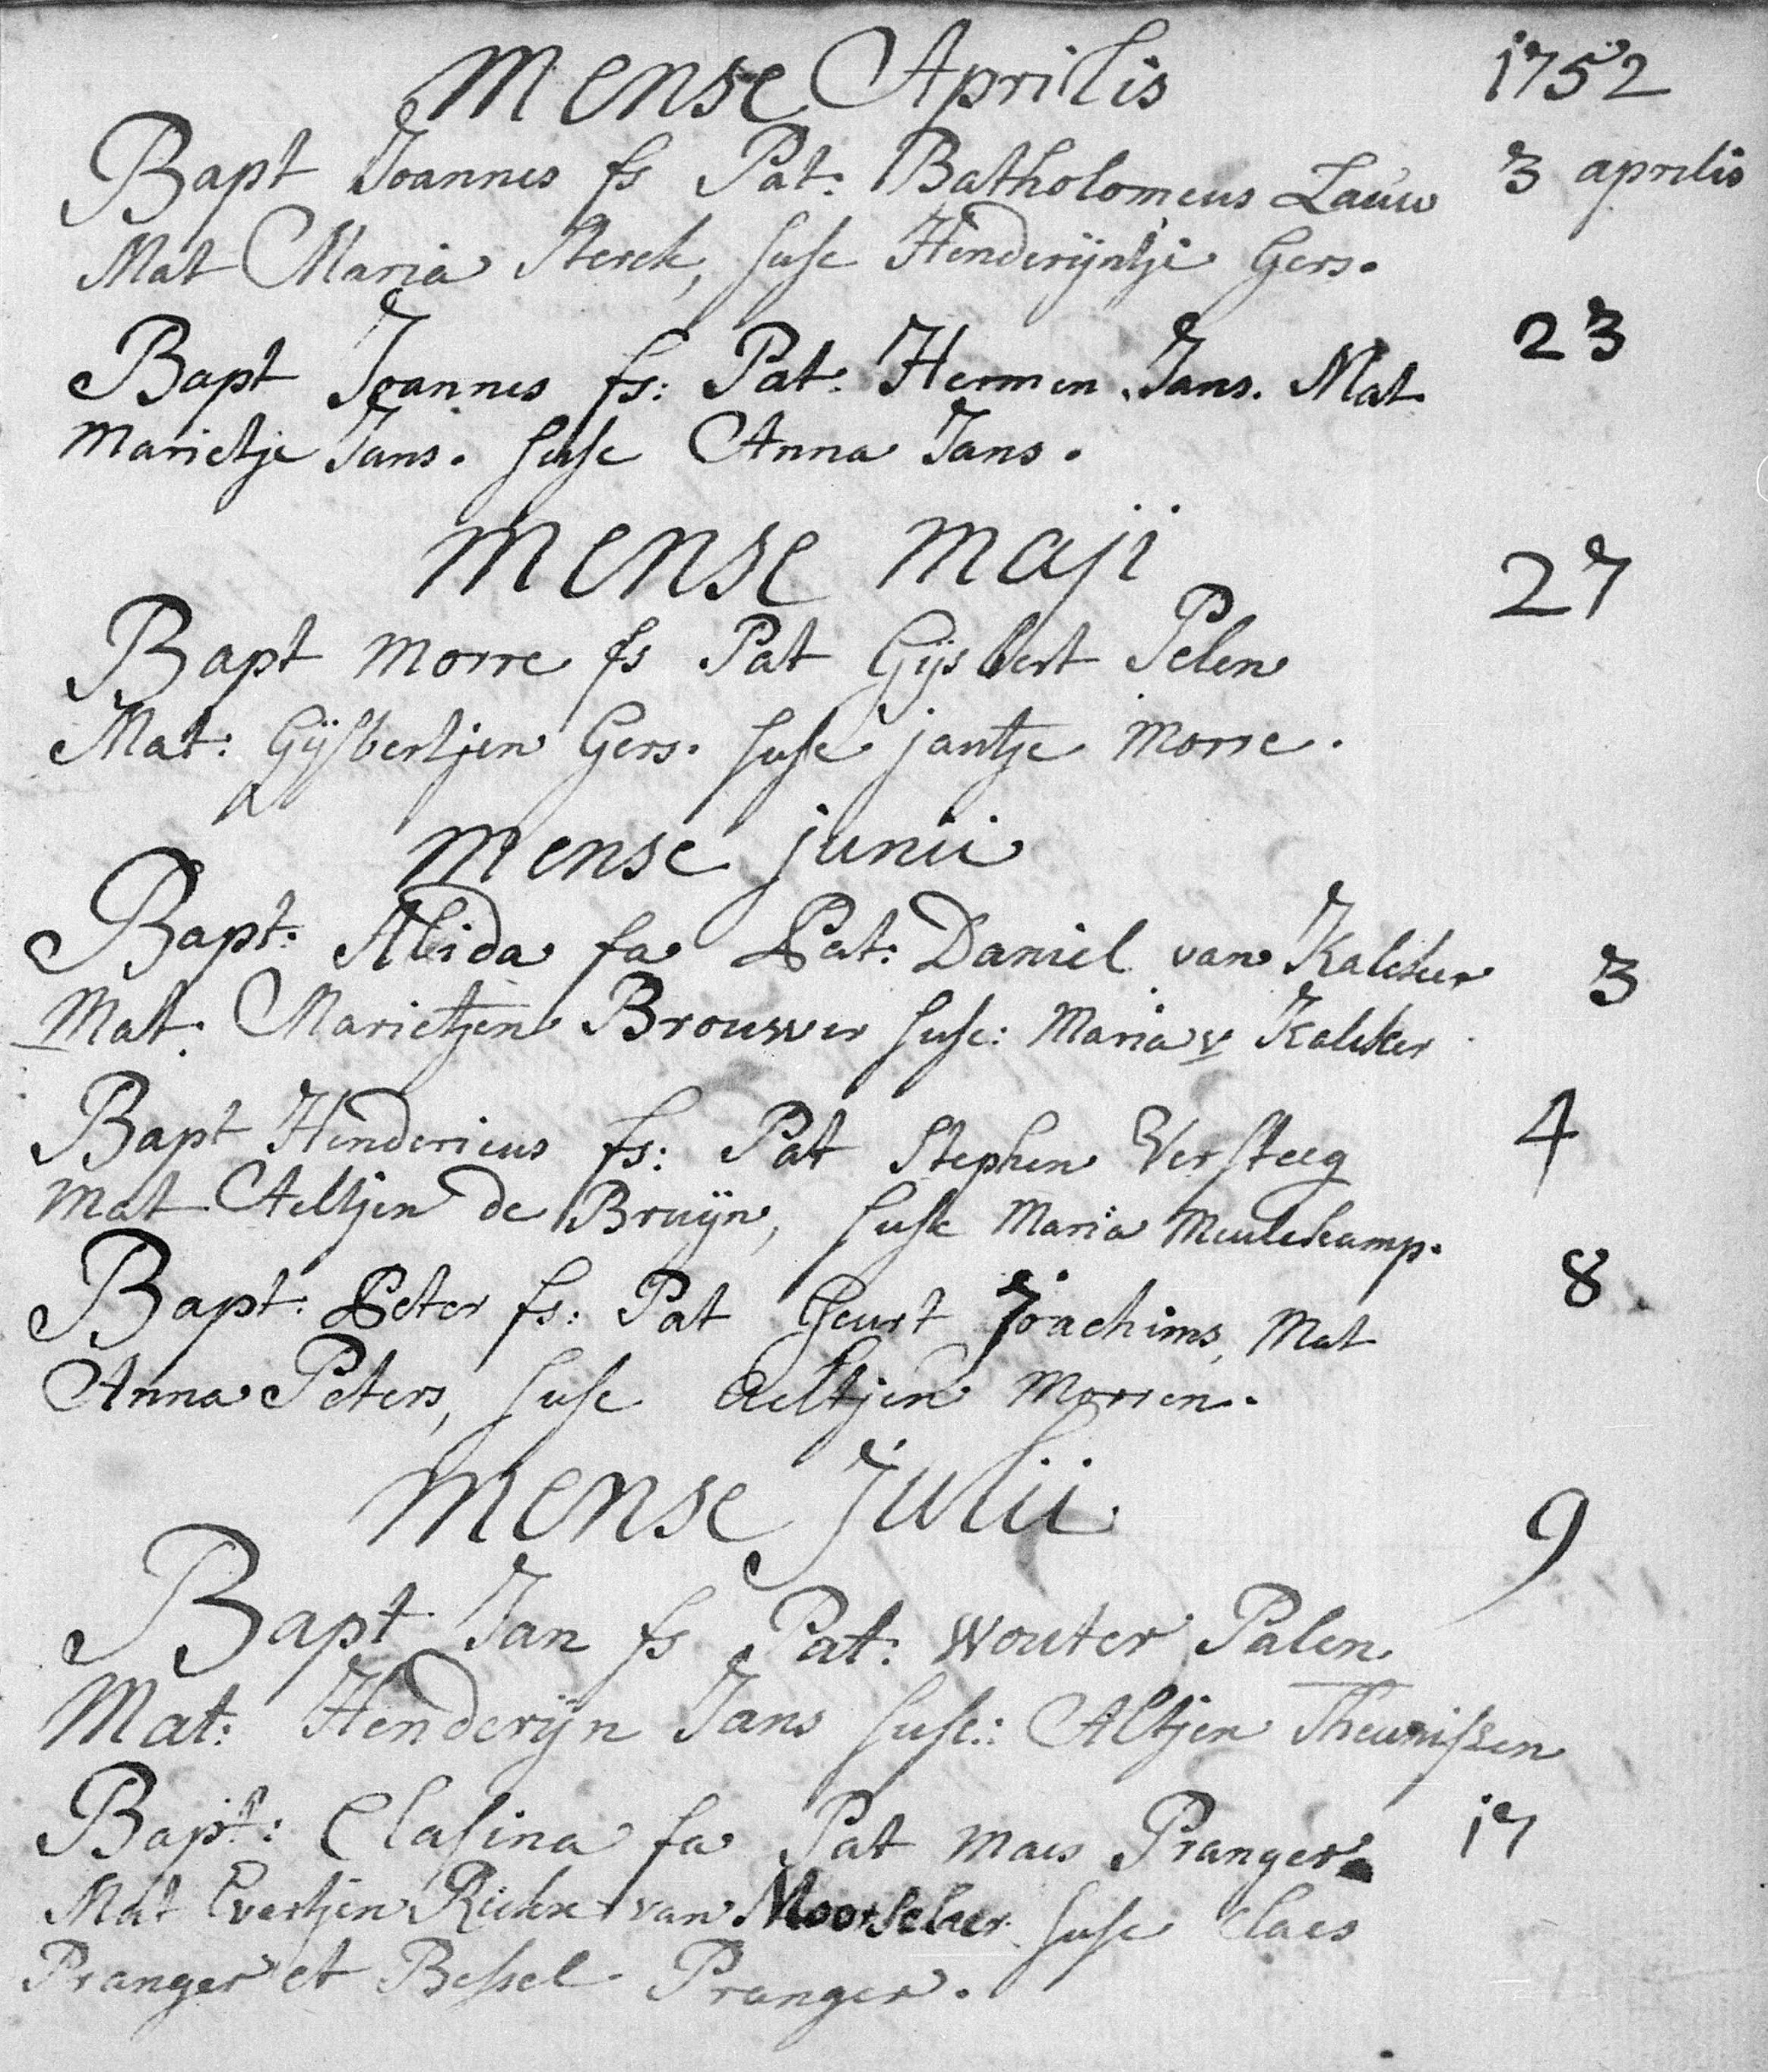 Mense Aprilis 1752
Bapt Joannes fs Pat: Batholomeus Lauw 3 aprilis
Mat Maria Sterck, Susc Henderijntje Gers.
Bapt Joannes fs: Pat: Hermen Jans. Mat 23
Marietje Jans. Susc Anna Jans.
Mense Maji 27
Bapt Morre fs Pat Gijsbert Pelen
Mat: Gijsbertjen Gers. Susc jantje Morre.
Mense junii
Bapt: Alida fa Pat: Daniel van Kalcker 3
Mat: Marietjen Brouwer Susc: Maria v Kalcker
Bapt Hendericus fs: Pat Stephen Versteeg 4
Mat Aeltjen de Bruijn, Susc Maria Meulekamp.
Bapt: Peter fs: Pat Geurt Joachims, Mat 8
Anna Peters, Susc Aeltjen Morren.
Mense Julii 9
Bapt Jan fs Pat: Wouter Palen
Mat: Henderijn Jans Susc: Altjen Theunissen
Bapt: Clasina fa Pat Maes Pranger 17
Mat Evertjen van Moorselaer Susc Claes
Pranger et Bessel Pranger.